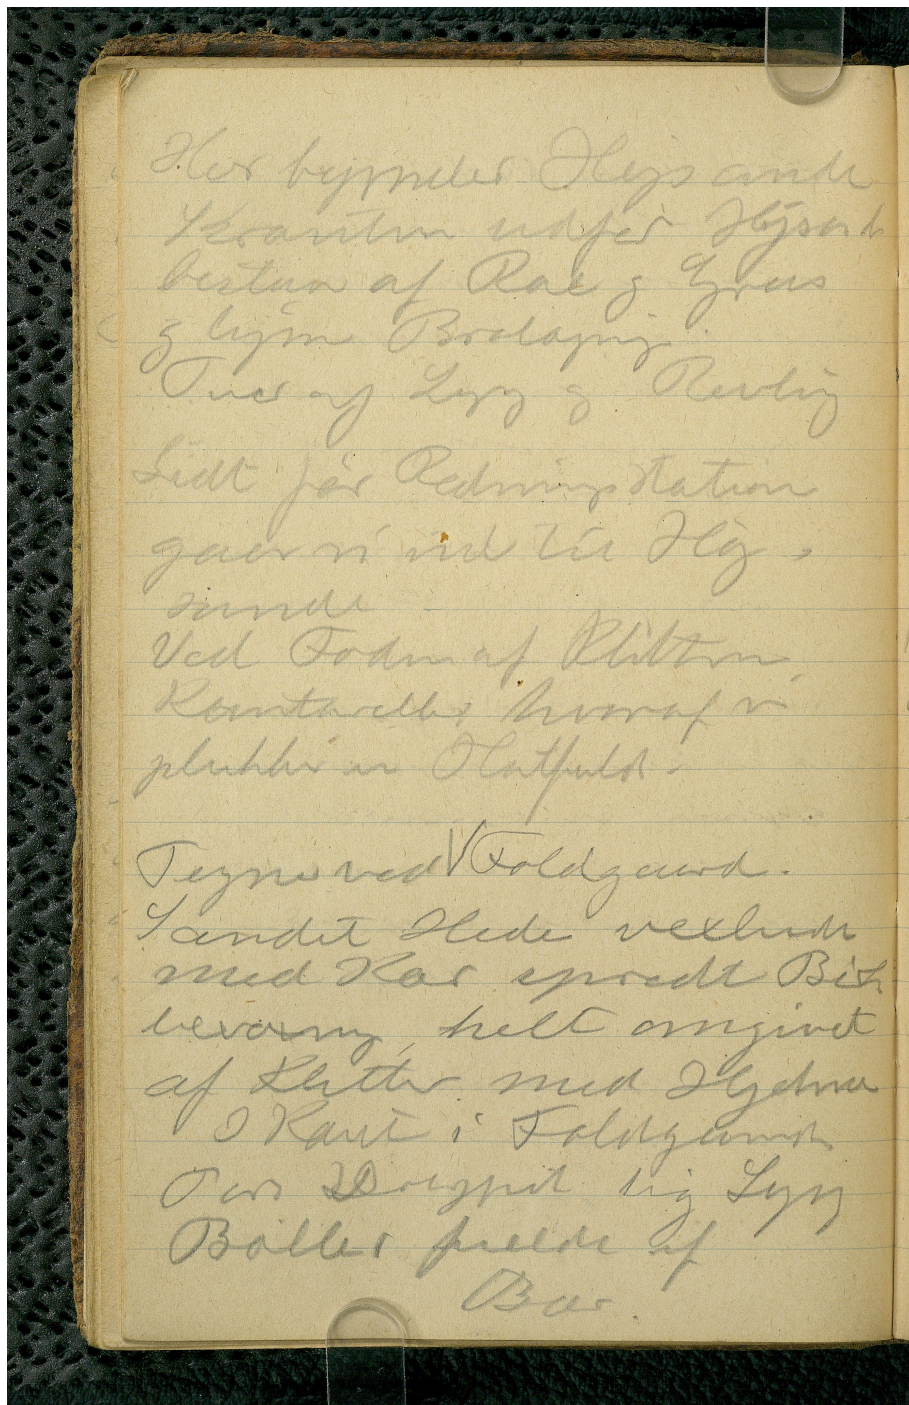 Her begynder Høgsande
Skrænten udfor Høgsand
bestaar af Ral og Grus
og lign Brolægnig.
Tuer af Lyng og Revling
Lidt før Redningsstation
gaar vi ind til Høg-
sande
Ved Foden af Klitten
Kantareller hvoraf vi
plukker en Hatfuld.
Tegne ved V Foldgaard.
Sandet Hede vexlende
med Kær spredt Birk
bevoxning, helt omgivet
af Klitter med Hjelme
I Kant i Foldgaard
Lyng
Bøller fulde af
Bær